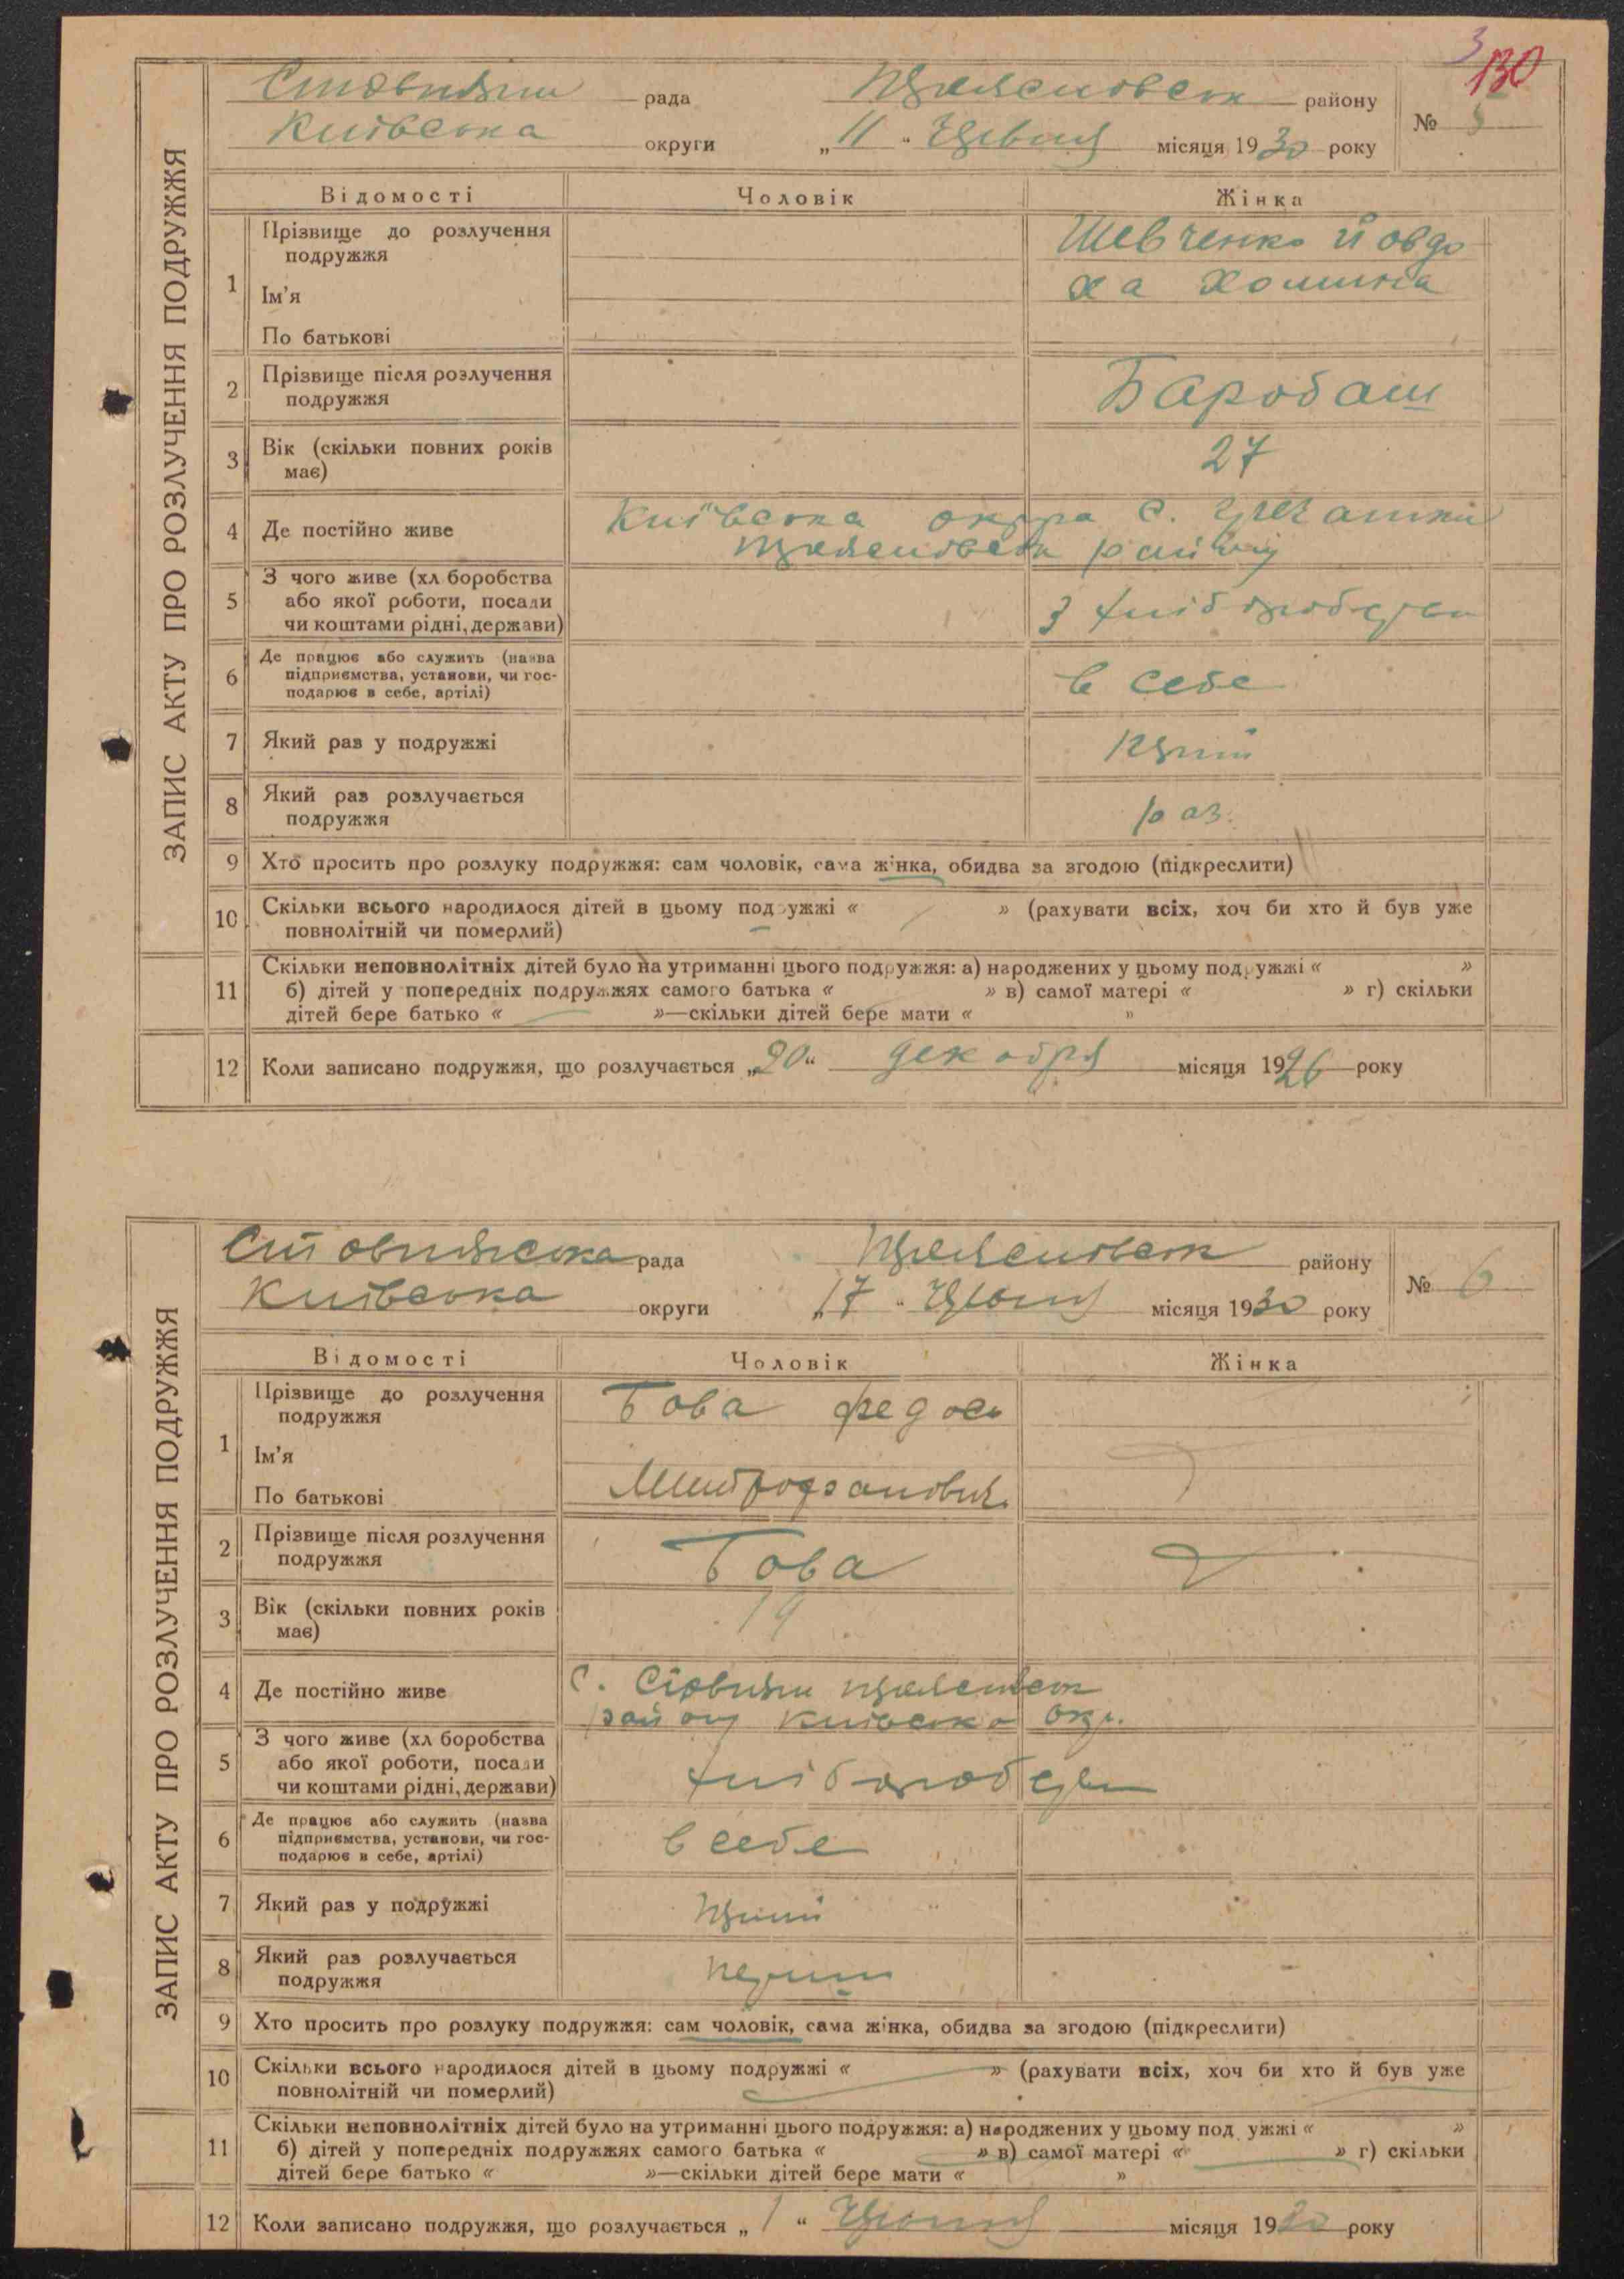 3
130
ЗАПИС АКТУ ПРО РОЗЛУЧЕННЯ ПОДРУЖЖЯ
рада району
Київська округи „11“ місяця 1930 року
№ 5
Відомості Чоловік Жінка
1 Прізвище до розлучення подружжя
Ім'я
По батькові
Шевченко Йовдо
ха Хомина
2 Прізвище після розлучення
подружжя
Баробаш
3 Вік (скільки повних років
має)
27
4 Де постійно живе
Київська округа с.
району
5 З чого живе (хліборобства
або якої роботи, посади
чи коштами рідні, держави)
з хліборобства
6 Де працює або служить (назва
підприємства, установи, чи гос-
подарює в себе, артілі)
в себе
7 Який раз у подружжі
8 Який раз розлучається
подружжя
раз.
9 Хто просить про розлуку подружжя: сам чоловік, сама жінка, обидва за згодою (підкреслити)
10 Скільки всього народилося дітей в цьому подружжі « » (рахувати всіх, хоч би хто й був уже
повнолітній чи померлий)
11 Скільки неповнолітніх дітей було на утриманні цього подружжя: а) народжених у цьому подружжі « »
б) дітей у попередніх подружжях самого батька « » в) самої матері « » г) скільки
дітей бере батько « »—скільки дітей бере мати « »
12 Коли записано подружжя, що розлучається „20“ декабря місяця 1926 року
ЗАПИС АКТУ ПРО РОЗЛУЧЕННЯ ПОДРУЖЖЯ
Стовпязька рада району
Київська округи „17“ місяця 1930 року
№ 6
Відомості Чоловік Жінка
1 Прізвище до розлучення
подружжя
Ім'я
По батькові
Бова Федось
Митрофанович
2 Прізвище після розлучення
подружжя
Бова
3 Вік (скільки повних років
має)
19
4 Де постійно живе
с. Стовпяги
району Київської окр.
5 З чого живе (хліборобства
або якої роботи, посади
чи коштами рідні, держави)
хліборобства
6 Де працює або служить (назва
підприємства, установи, чи гос-
подарює в себе, артілі)
в себе
7 Який раз у подружжі
8 Який раз розлучається
подружжя
перший
9 Хто просить про розлуку подружжя: сам чоловік, сама жінка, обидва за згодою (підкреслити)
10 Скільки всього народилося дітей в цьому подружжі « » (рахувати всіх, хоч би хто й був уже
повнолітній чи померлий)
11 Скільки неповнолітніх дітей було на утриманні цього подружжя: а) народжених у цьому подружжі « »
б) дітей у попередніх подружжях самого батька « » в) самої матері « » г) скільки
дітей бере батько « »—скільки дітей бере мати « »
12 Коли записано подружжя, що розлучається „1“ місяця 1930 року